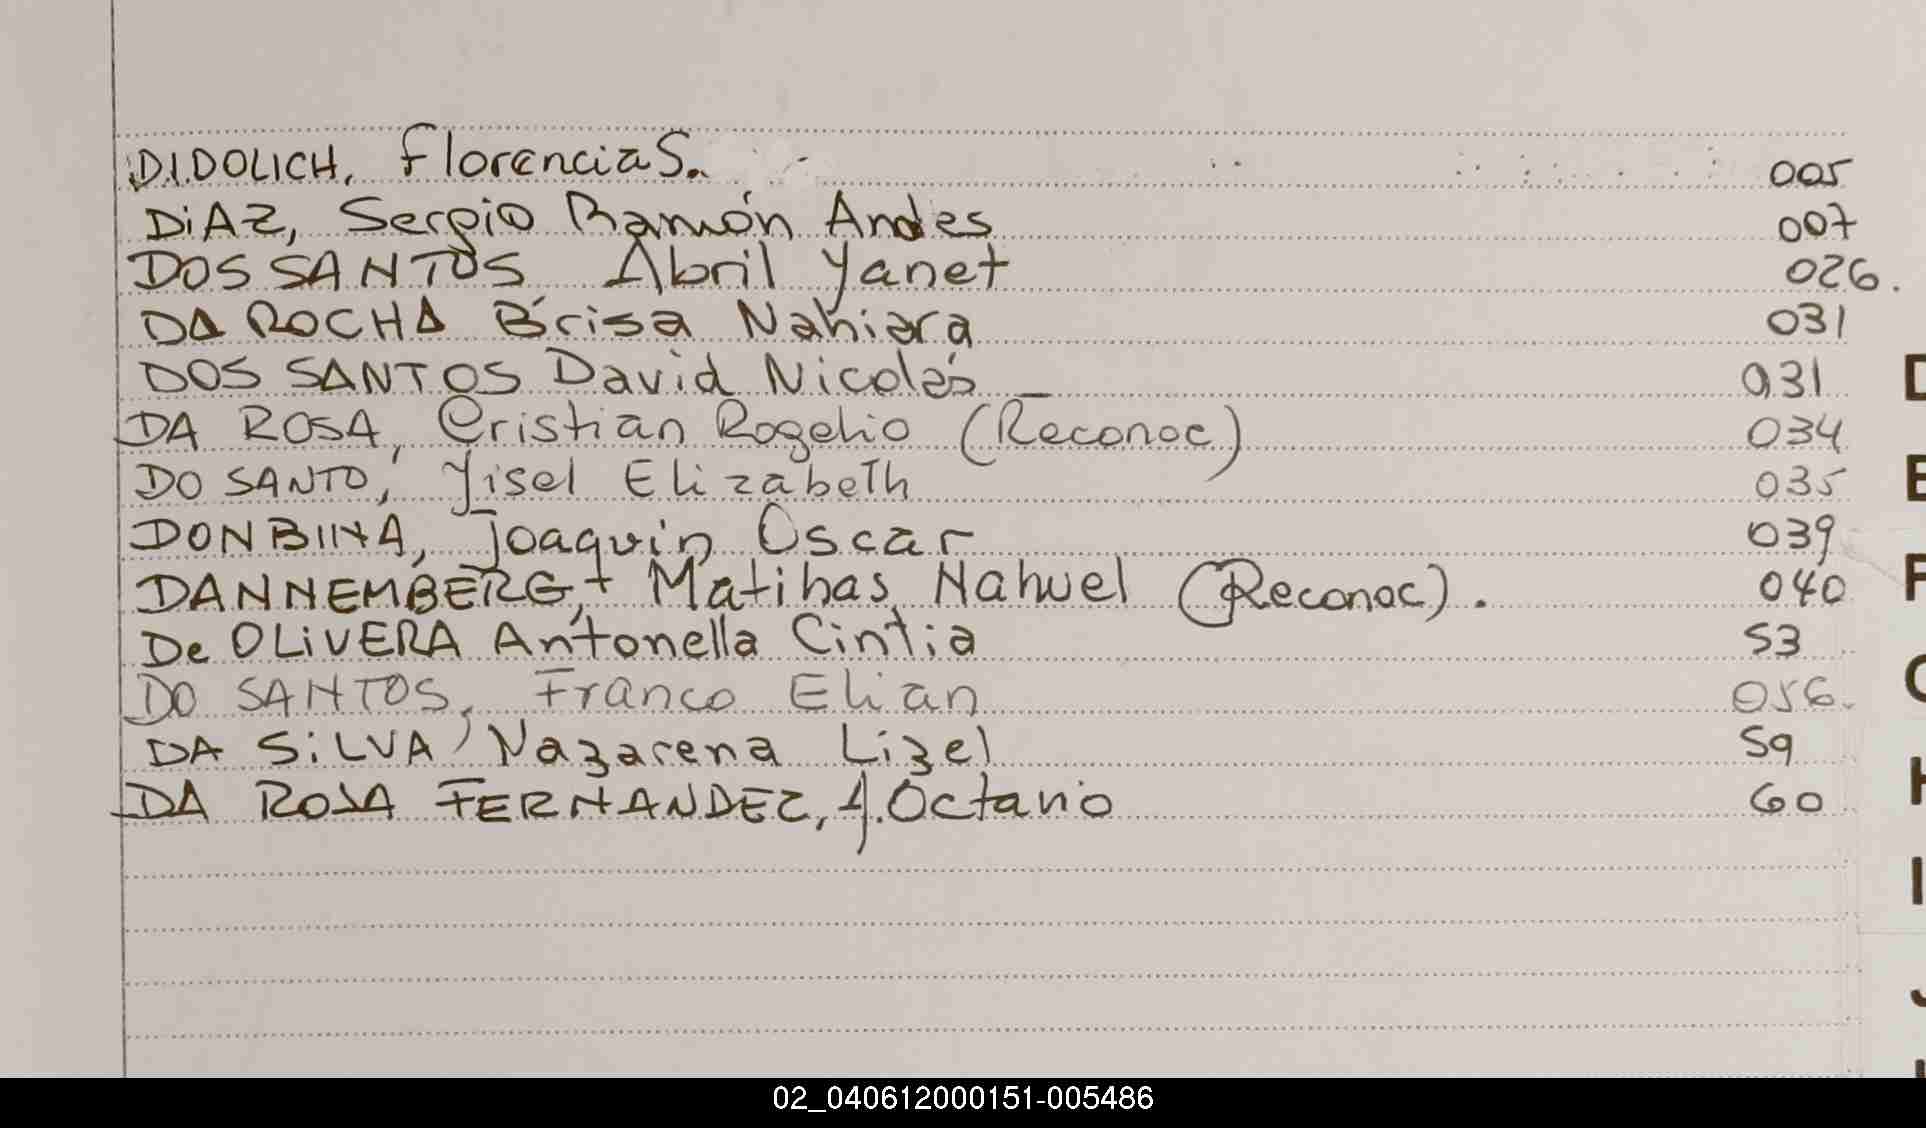 DIDOLICH, Florencia S. 005
DiAZ, Sergio Ramón Andes 007
DOS SANTOS Abril Yanet 026.
DA ROCHA Brisa Nahiara 031
DOS SANTOS David Nicolás 031
DA ROSA, Cristian Rogelio (Reconoc) 034
DO SANTO, Yisel Elizabeth 035
Joaquín Oscar 039
DANNEMBERG, Matihas Nahuel (Reconoc). 040
De OLiVERA Antonella Cintia 53
DO SANTOS, Franco Elian 056.
DA SiLVA, Nazarena Lizel 59
DA ROSA FERNANDEZ, J. Octavio 60
D
E
F
G
H
I
J
02_040612000151-005486